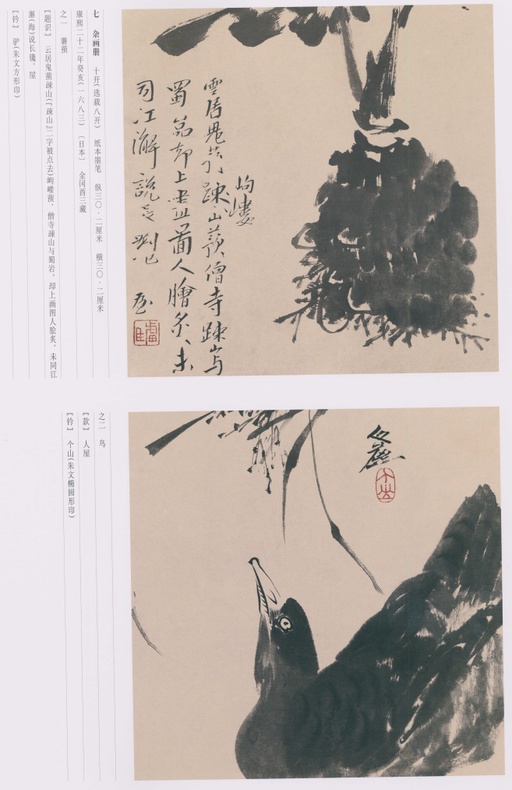 七 杂画册 十开（选载八开） 纸本墨笔 纵三〇·二厘米 横三〇·二厘米
康熙二十二年癸亥（一六八三） 〔日本〕 金冈酉三藏
之一 蘑蓣
〔题识〕 云居凫茈疎山（「疎山」二字被点去）岣嵝蓣，僧寺疎山与蜀岩，却上画图人脍炙，未同江
澥（海）说长镵。屋
〔钤〕 驴（朱文方形印）
岣嵝
雲居凫茈疎山蓣僧寺疎山与
蜀嵒却上畫圖人膾炙未
同江澥説長
屋
之二 鸟
〔款〕 人屋
〔钤〕 个山（朱文椭圆形印）
人屋
个山